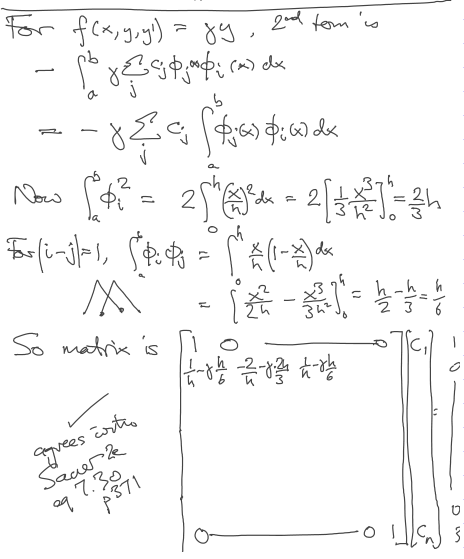 For f(x,y,y') = γy, 2nd term is
- ∫_a^b γ Σ_j c_j φ_j(x) φ_i(x) dx
= - γ Σ_j c_j ∫_a^b φ_j(x) φ_i(x) dx
Now ∫_a^b φ_i^2 = 2∫_0^h (x/h)^2 dx = 2[1/3 x^3/h^2]_0^h = 2/3 h
For |i-j|=1, ∫_a^b φ_i φ_j = ∫_0^h x/h (1-x/h) dx
= [x^2/2h - x^3/3h^2]_0^h = h/2 - h/3 = h/6
So matrix is [1 0 0] [c_1] 1
1/h-γh/6 -2/h-γ2h/3 1/h-γh/6 0
=
✓
agrees with
Sauer 2e
eq 7.30
p371
0
0 0 1] [c_n] 3